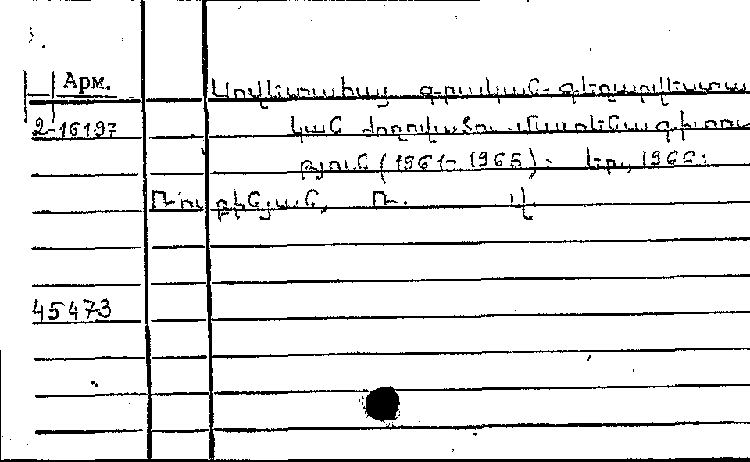 Арм.
Սովետահայ գրական-գեղարվեստա
2-16197
կան ժողովածու. մատենագիտու
թյուն (1961-1965). Եր., 1966:
Ռուբինյան, Ռ. Վ.
45473